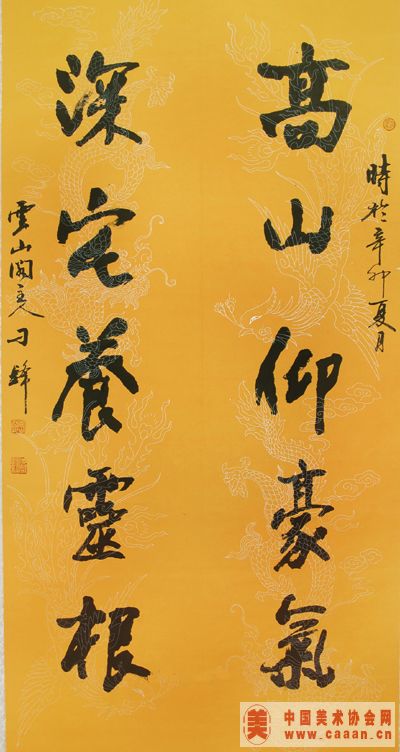 時於辛卯夏月
高山仰豪氣
深宅養靈根
雲山閣主人刁鋒
美
中国美术协会网
www.caaan.cn